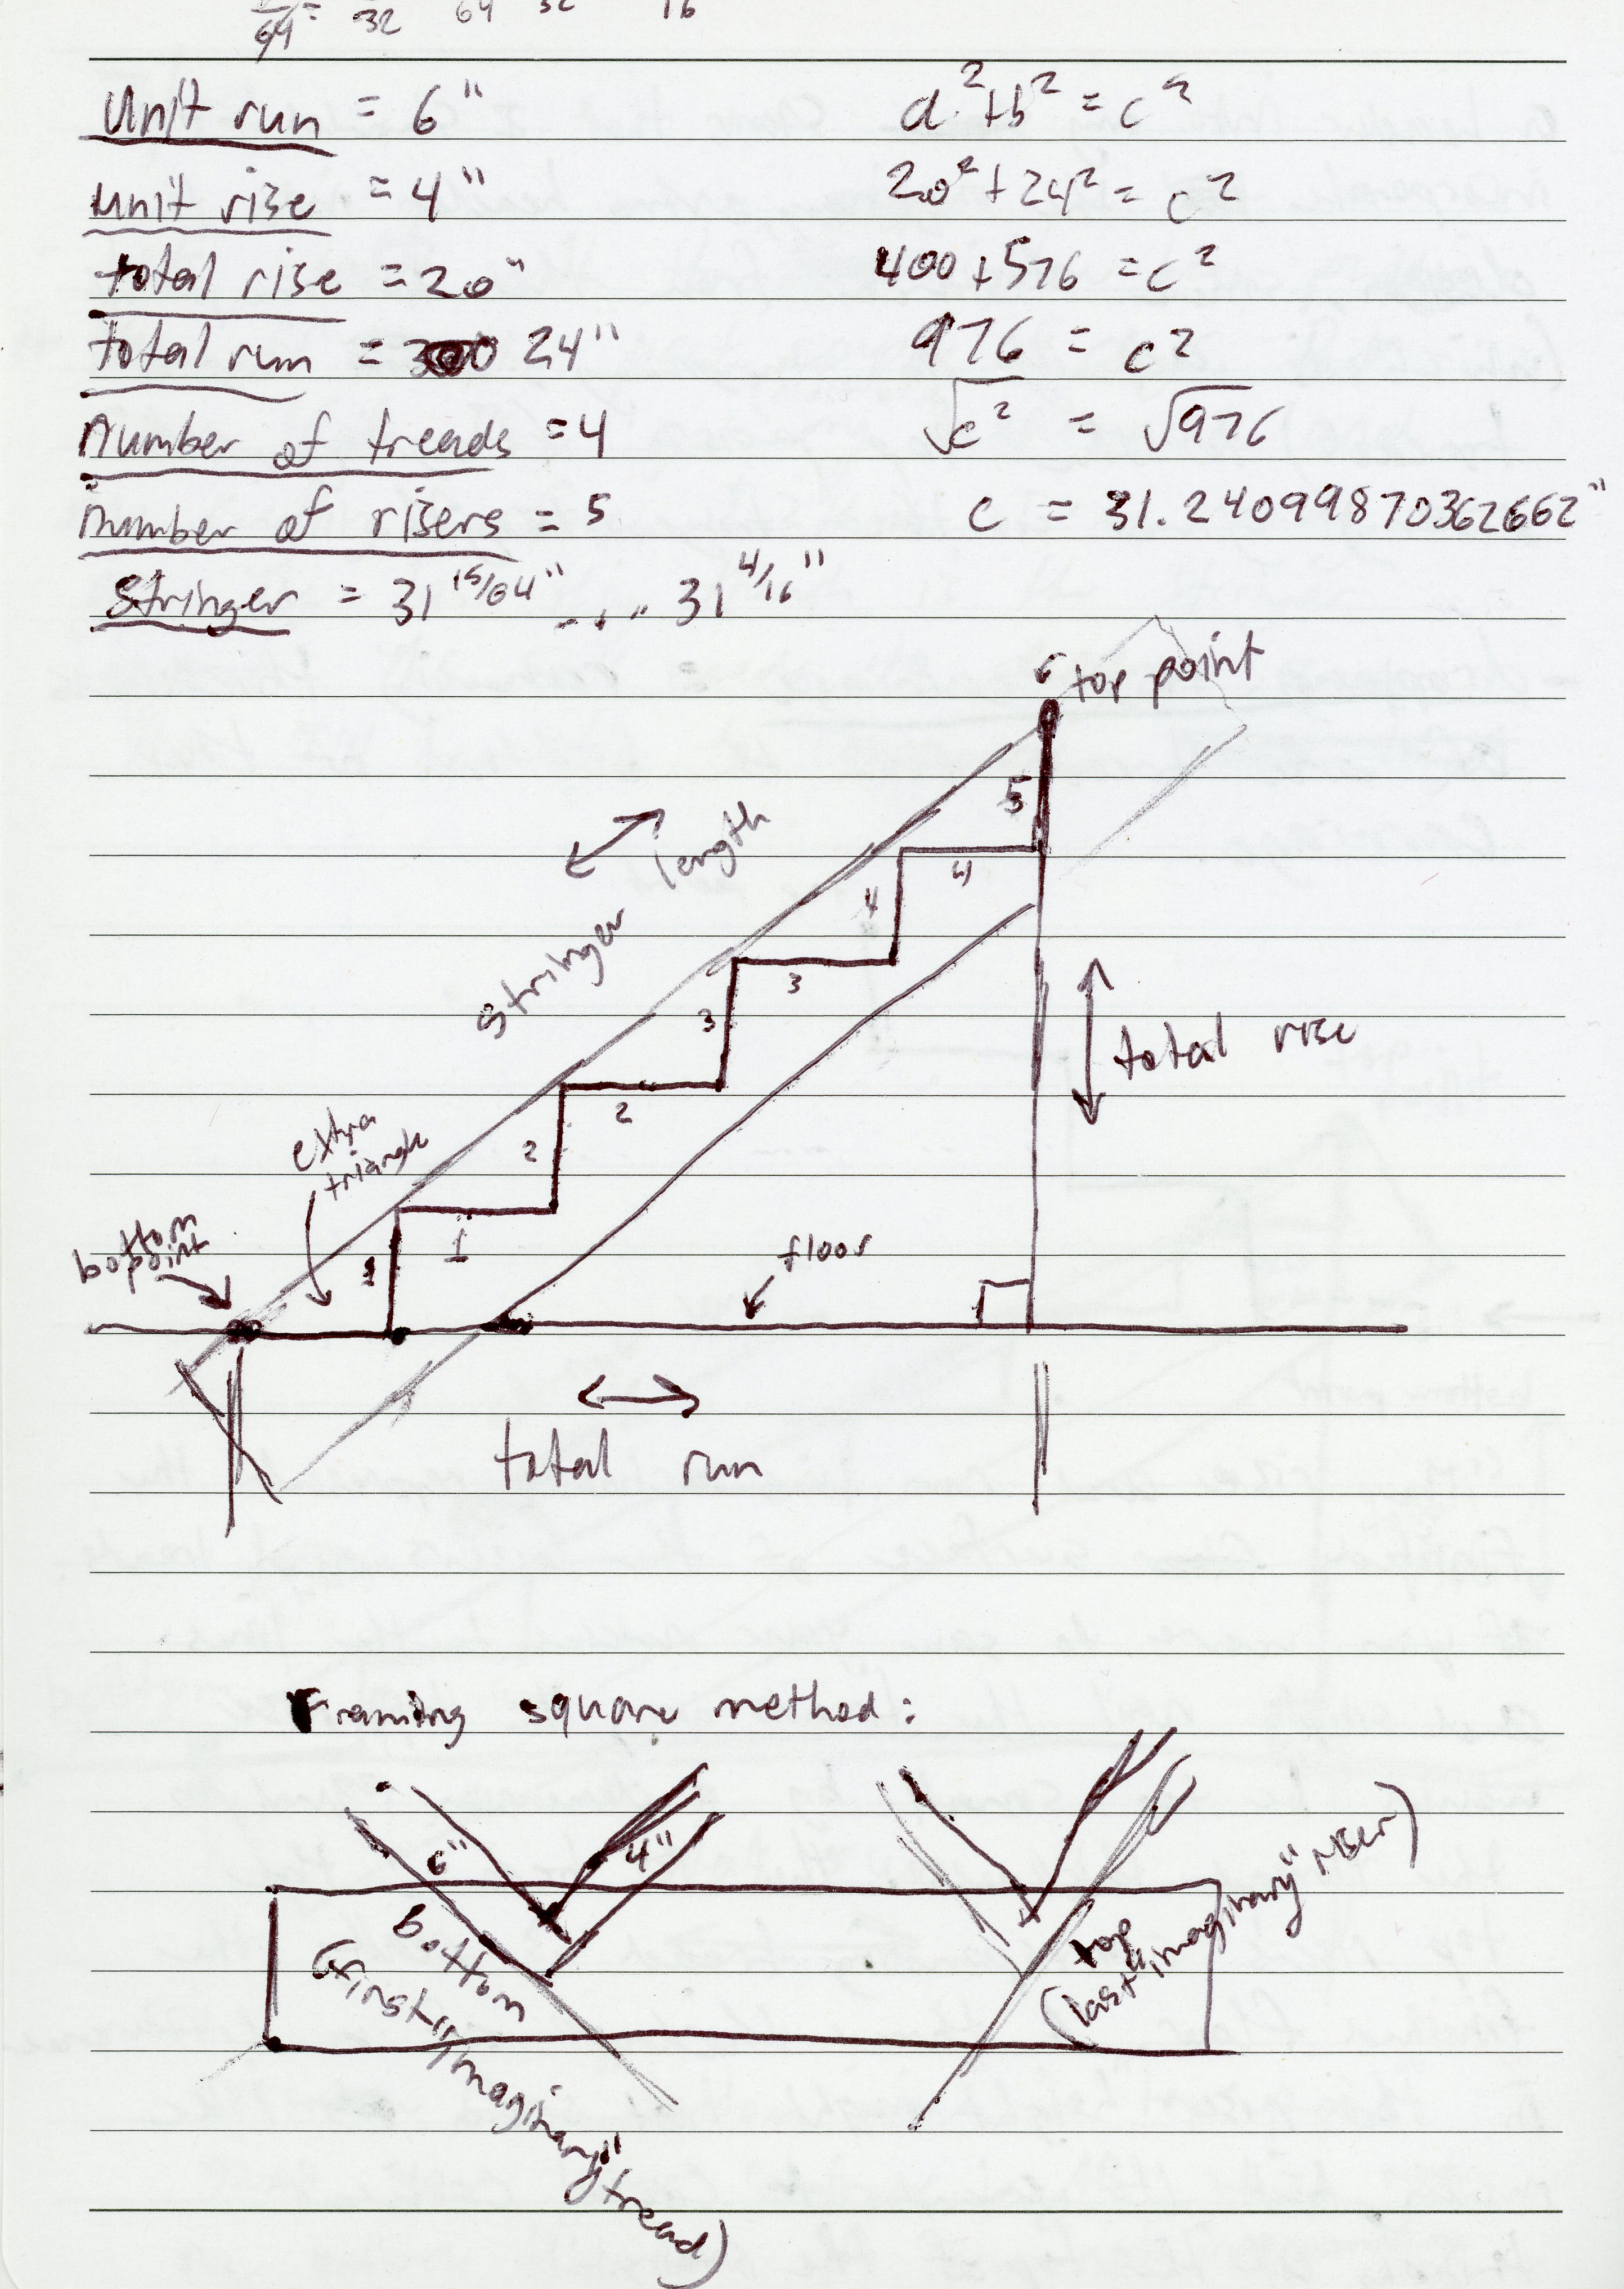 64 = 32 64 32 16
Unit run = 6" a²+b² = c²
unit rise = 4" 20²+24² = c²
total rise = 20" 400+576 = c²
total run = 24" 976 = c²
Number of treads = 4 √c² = √976
number of risers = 5 c = 31.24099870362662"
Stringer = 31 15/64" -+" 31 4/16"
top point
5
stringer length
4
4
3
3
total rise
2
2
extra triangle
1
1
bottom point
floor
total run
Framing square method:
6" 4"
bottom
(first "imaginary" tread)
top
(last "imaginary" riser)